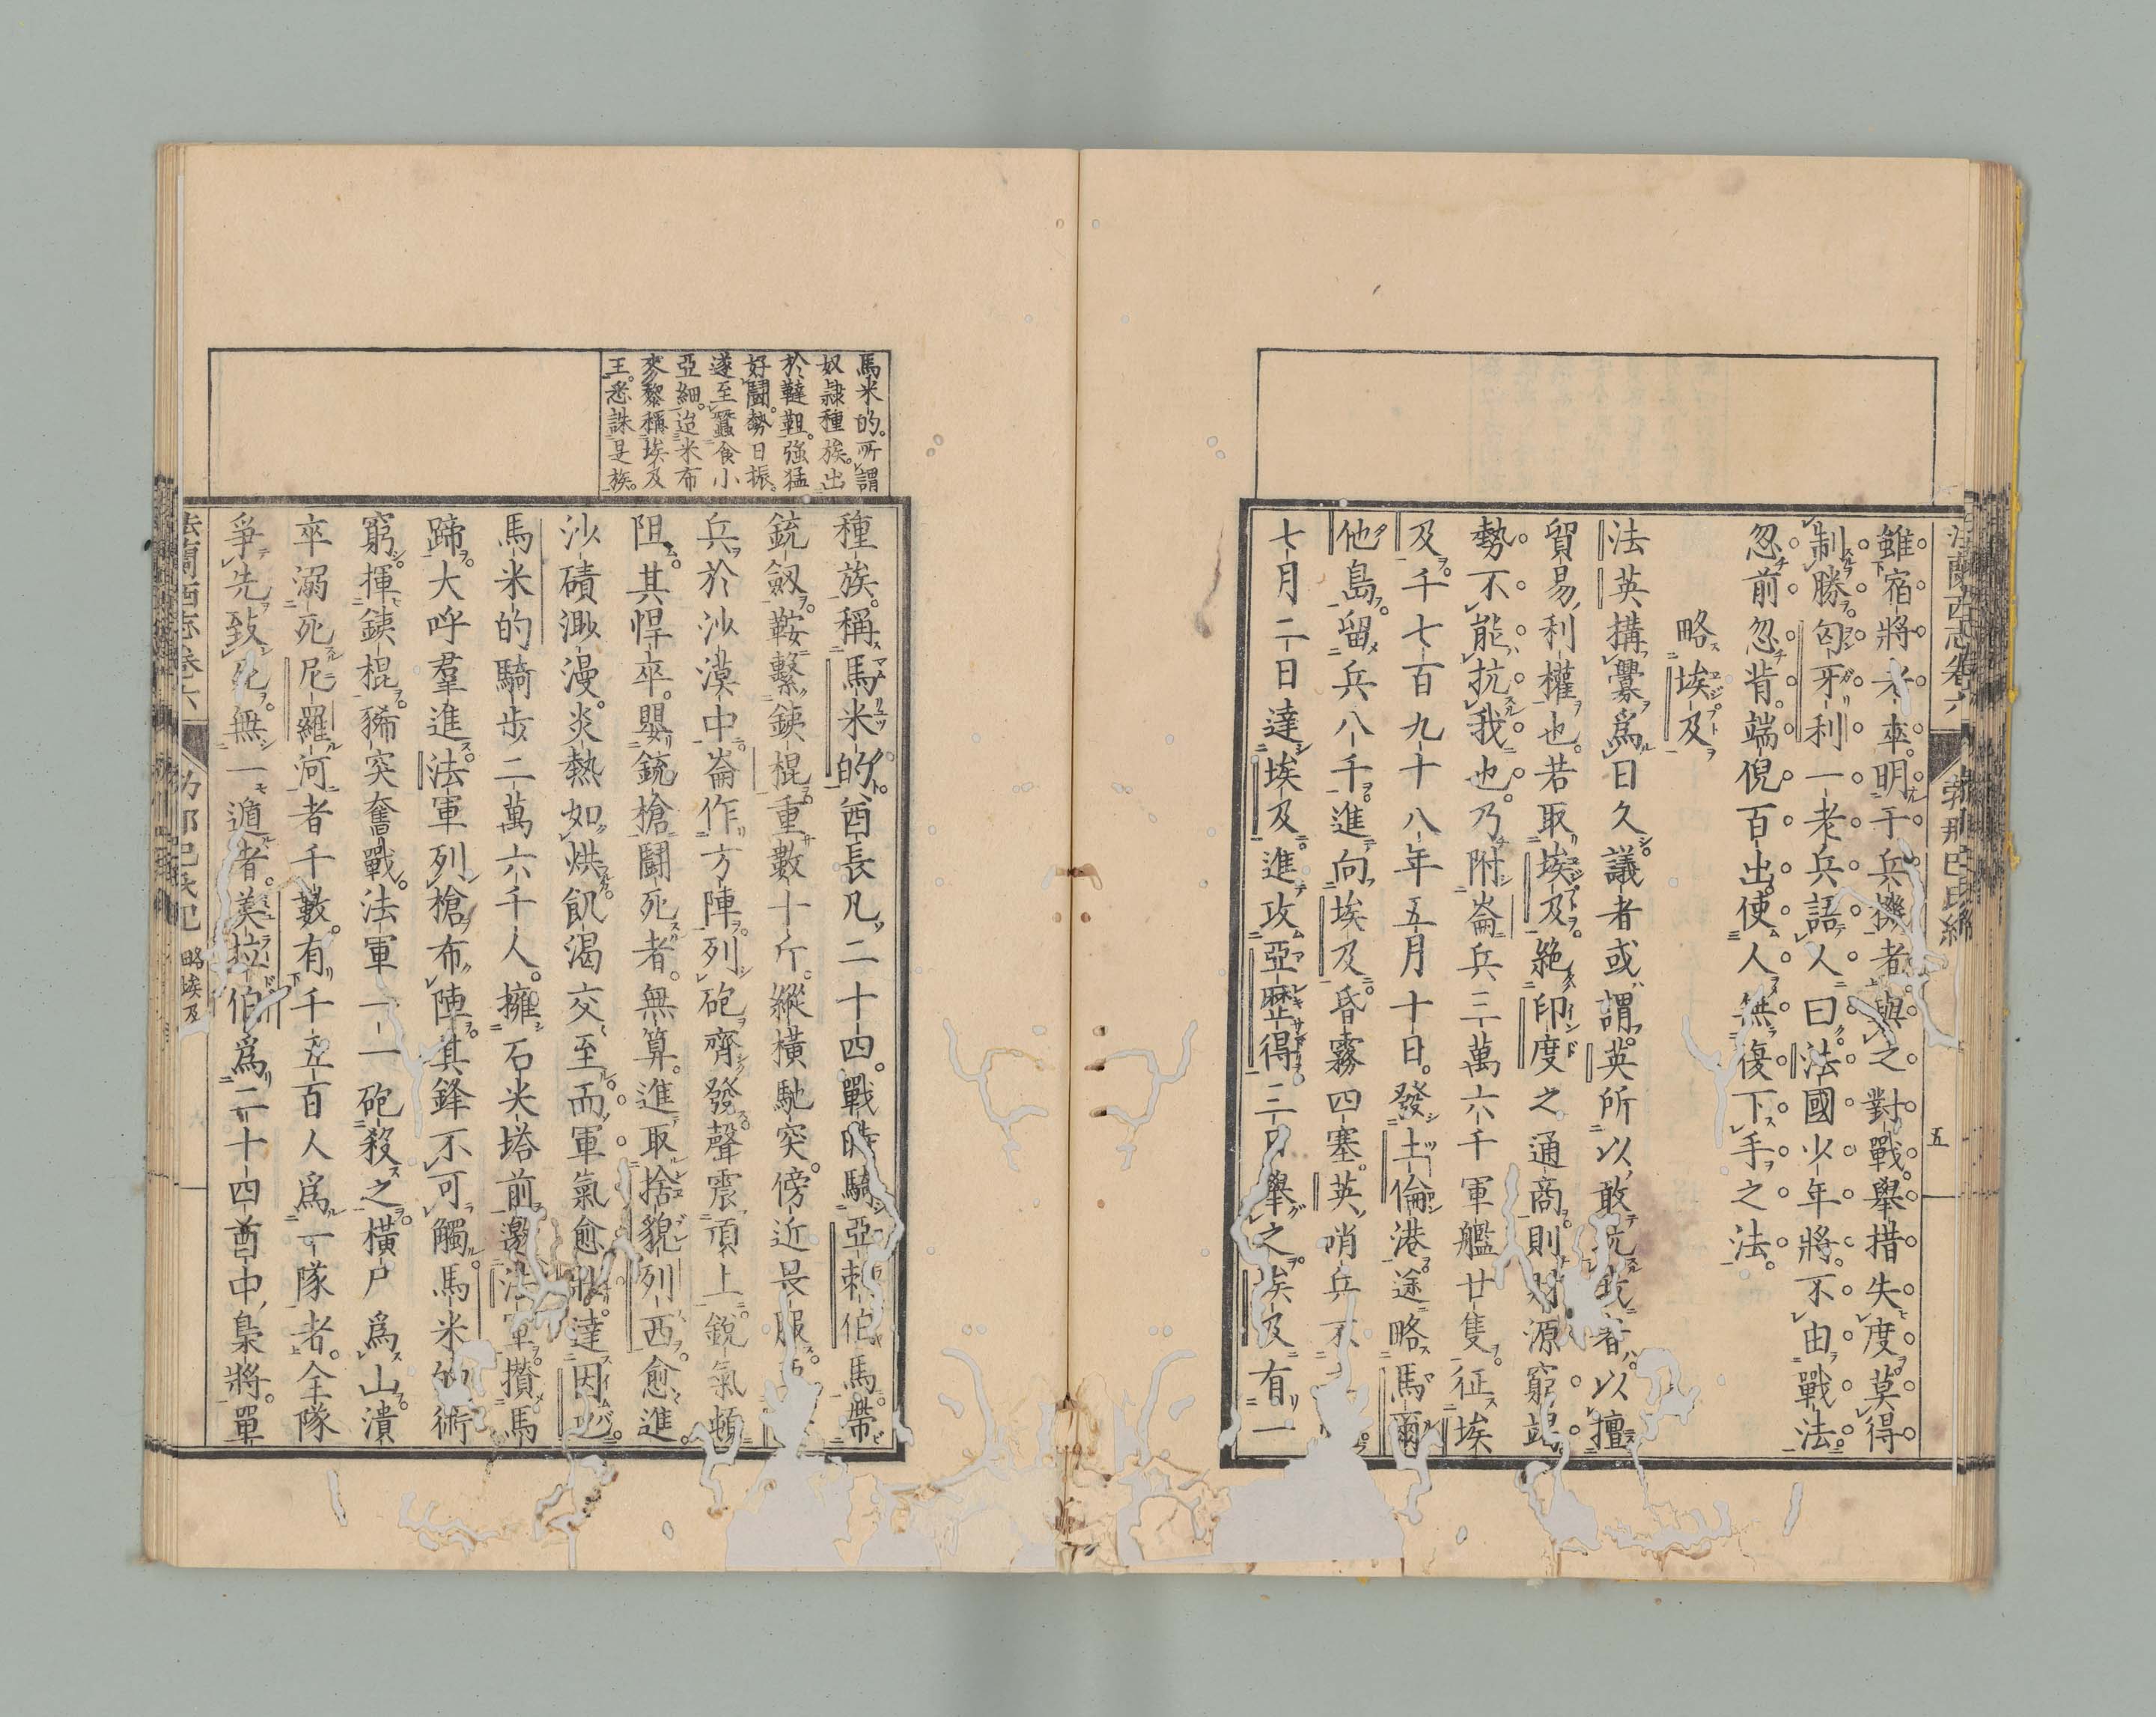 法蘭西志卷六　勃那巴氏紀　五
雖宿將老卒明于兵機者與之對戰舉措失度莫得
制勝匈牙利一老兵語人曰法國少年將不由戰法
忽前忽背端倪百出使人無復下手之法
略埃及
法英搆釁爲日久議者或謂英所以敢抗我者以擅
貿易利權也若取埃及絶印度之通商則財源窮竭
勢不能抗我也乃附崙兵三萬六千軍艦廿隻征埃
及千七百九十八年五月十日發土倫港途略馬爾
他島留兵八千進向埃及昏霧四塞英哨兵不
七月二日達埃及進攻亞歴得三日舉之埃及有一
馬米的所謂
奴隷種族出
於韃靼強猛
好鬪勢日振
遂至蠶食小
亞細迨米布
麥黎稱埃及
王悉誅是族
種族稱馬米的酋長凡二十四戰時騎亞剌伯馬帶
銃劔鞍繫鋏棍重數十斤縱横馳突傍近畏服
兵於沙漠中崙作方陣列砲齊發聲震頂上銳氣頓
阻其悍卒嬰銃槍鬪死者無算進取捨貌列西愈進
沙磧渺漫炎熱如烘飢渴交至而軍氣愈壯達因
馬米的騎歩二萬六千人擁石尖塔前邀法軍攢馬
蹄大呼羣進法軍列槍布陣其鋒不可觸馬米的術
窮揮鋏棍豨突奮戰法軍一一砲殺之横尸爲山潰
卒溺死尼羅河者千數有千五百人爲一隊者全隊
爭先致死無一遁者美拉伯爲二十四酋中梟將單
法蘭西志卷六　勃那巴氏紀　略埃及